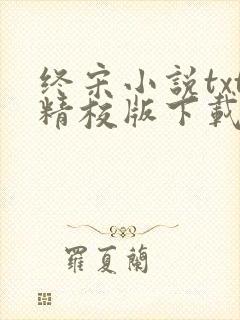 终宋小説txt
精校版下載
羅夏蘭